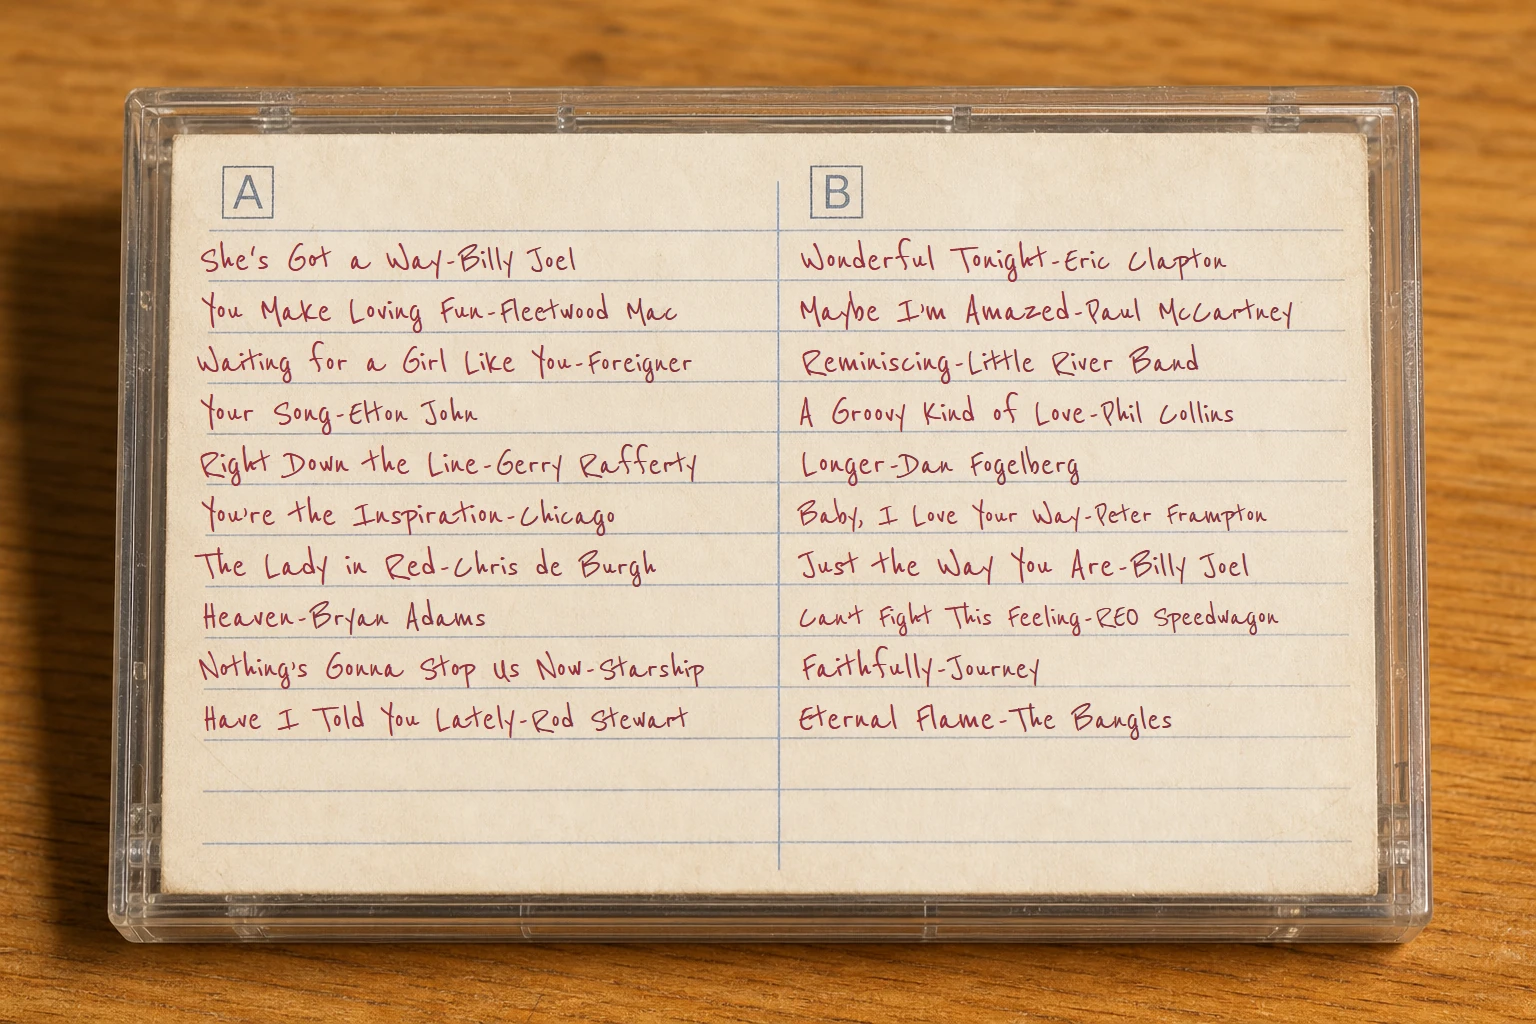 A
She's Got a Way-Billy Joel
You Make Loving Fun-Fleetwood Mac
Waiting for a Girl Like You-Foreigner
Your Song-Elton John
Right Down the Line-Gerry Rafferty
You're the Inspiration-Chicago
The Lady in Red-Chris de Burgh
Heaven-Bryan Adams
Nothing's Gonna Stop Us Now-Starship
Have I Told You Lately-Rod Stewart
B
Wonderful Tonight-Eric Clapton
Maybe I'm Amazed-Paul McCartney
Reminiscing-Little River Band
A Groovy Kind of Love-Phil Collins
Longer-Dan Fogelberg
Baby, I Love Your Way-Peter Frampton
Just the Way You Are-Billy Joel
Can't Fight This Feeling-REO Speedwagon
Faithfully-Journey
Eternal Flame-The Bangles